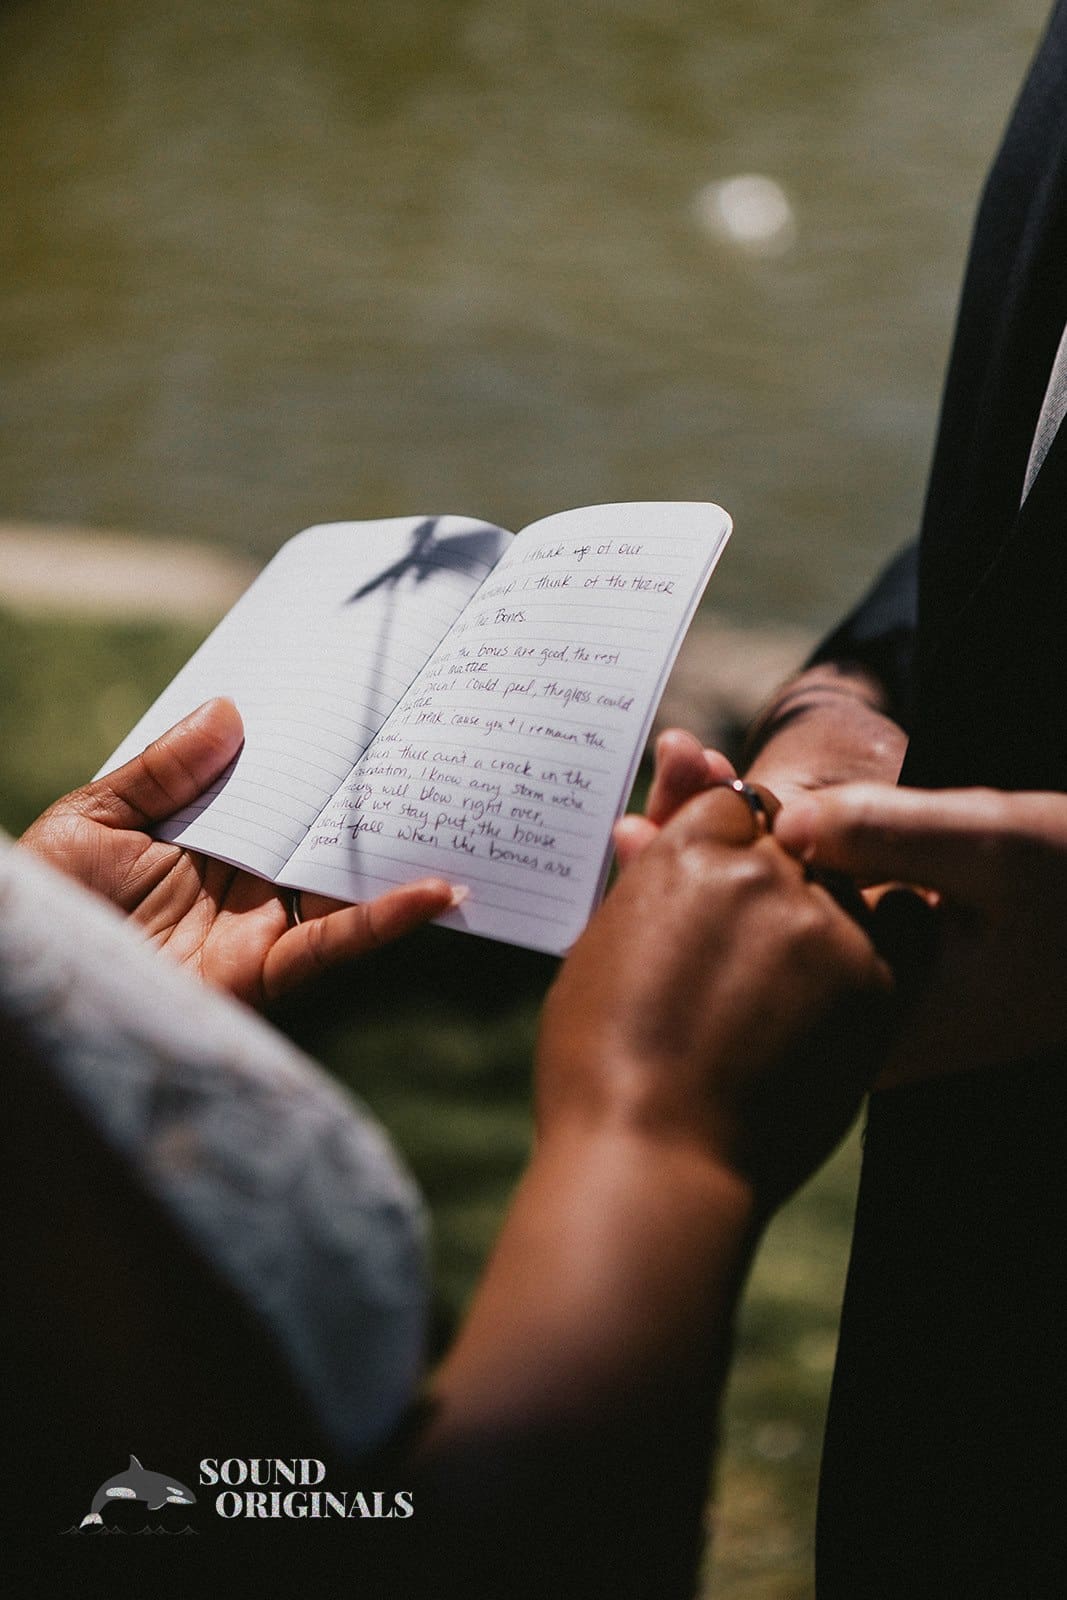 I think up of our
I think of the Hozier
The Bones.
the bones are good, the rest
matter
paint could peel, the glass could
it break 'cause you + I remain the
when there ain't a crack in the
I know any storm we're
will blow right over,
while we stay put, the house
fall when the bones are
good.
SOUND
ORIGINALS